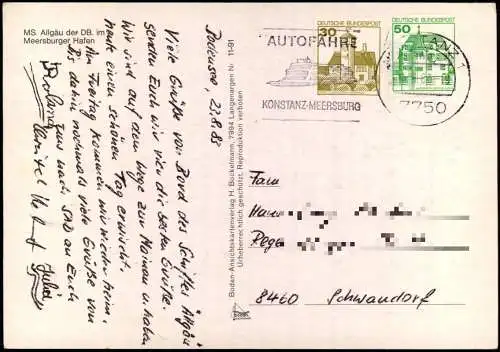 MS. Allgäu der DB. im
Meersburger Hafen
Bodensee, 23.8.88
Viele Grüße von Bord des Schiffes Allgäu
senden Euch wir vier die besten Grüße.
Wir sind auf dem Wege zur Mainau u. haben
heute einen schönen Tag erwischt.
Am Freitag kommen wir wieder heim.
Bis dahin nochmals viele Grüße vom
uns nach SAD an Euch
Roland
Julia
Boden-Ansichtskartenverlag H. Bockelmann, 7994 Langenargen Nr. 11-91
Urheberrechtlich geschützt, Reproduktion verboten
AUTOFÄHRE
KONSTANZ-MEERSBURG
30
DEUTSCHE BUNDESPOST
50
DEUTSCHE BUNDESPOST
KONSTANZ 1
7750
Fam
8460 Schwandorf